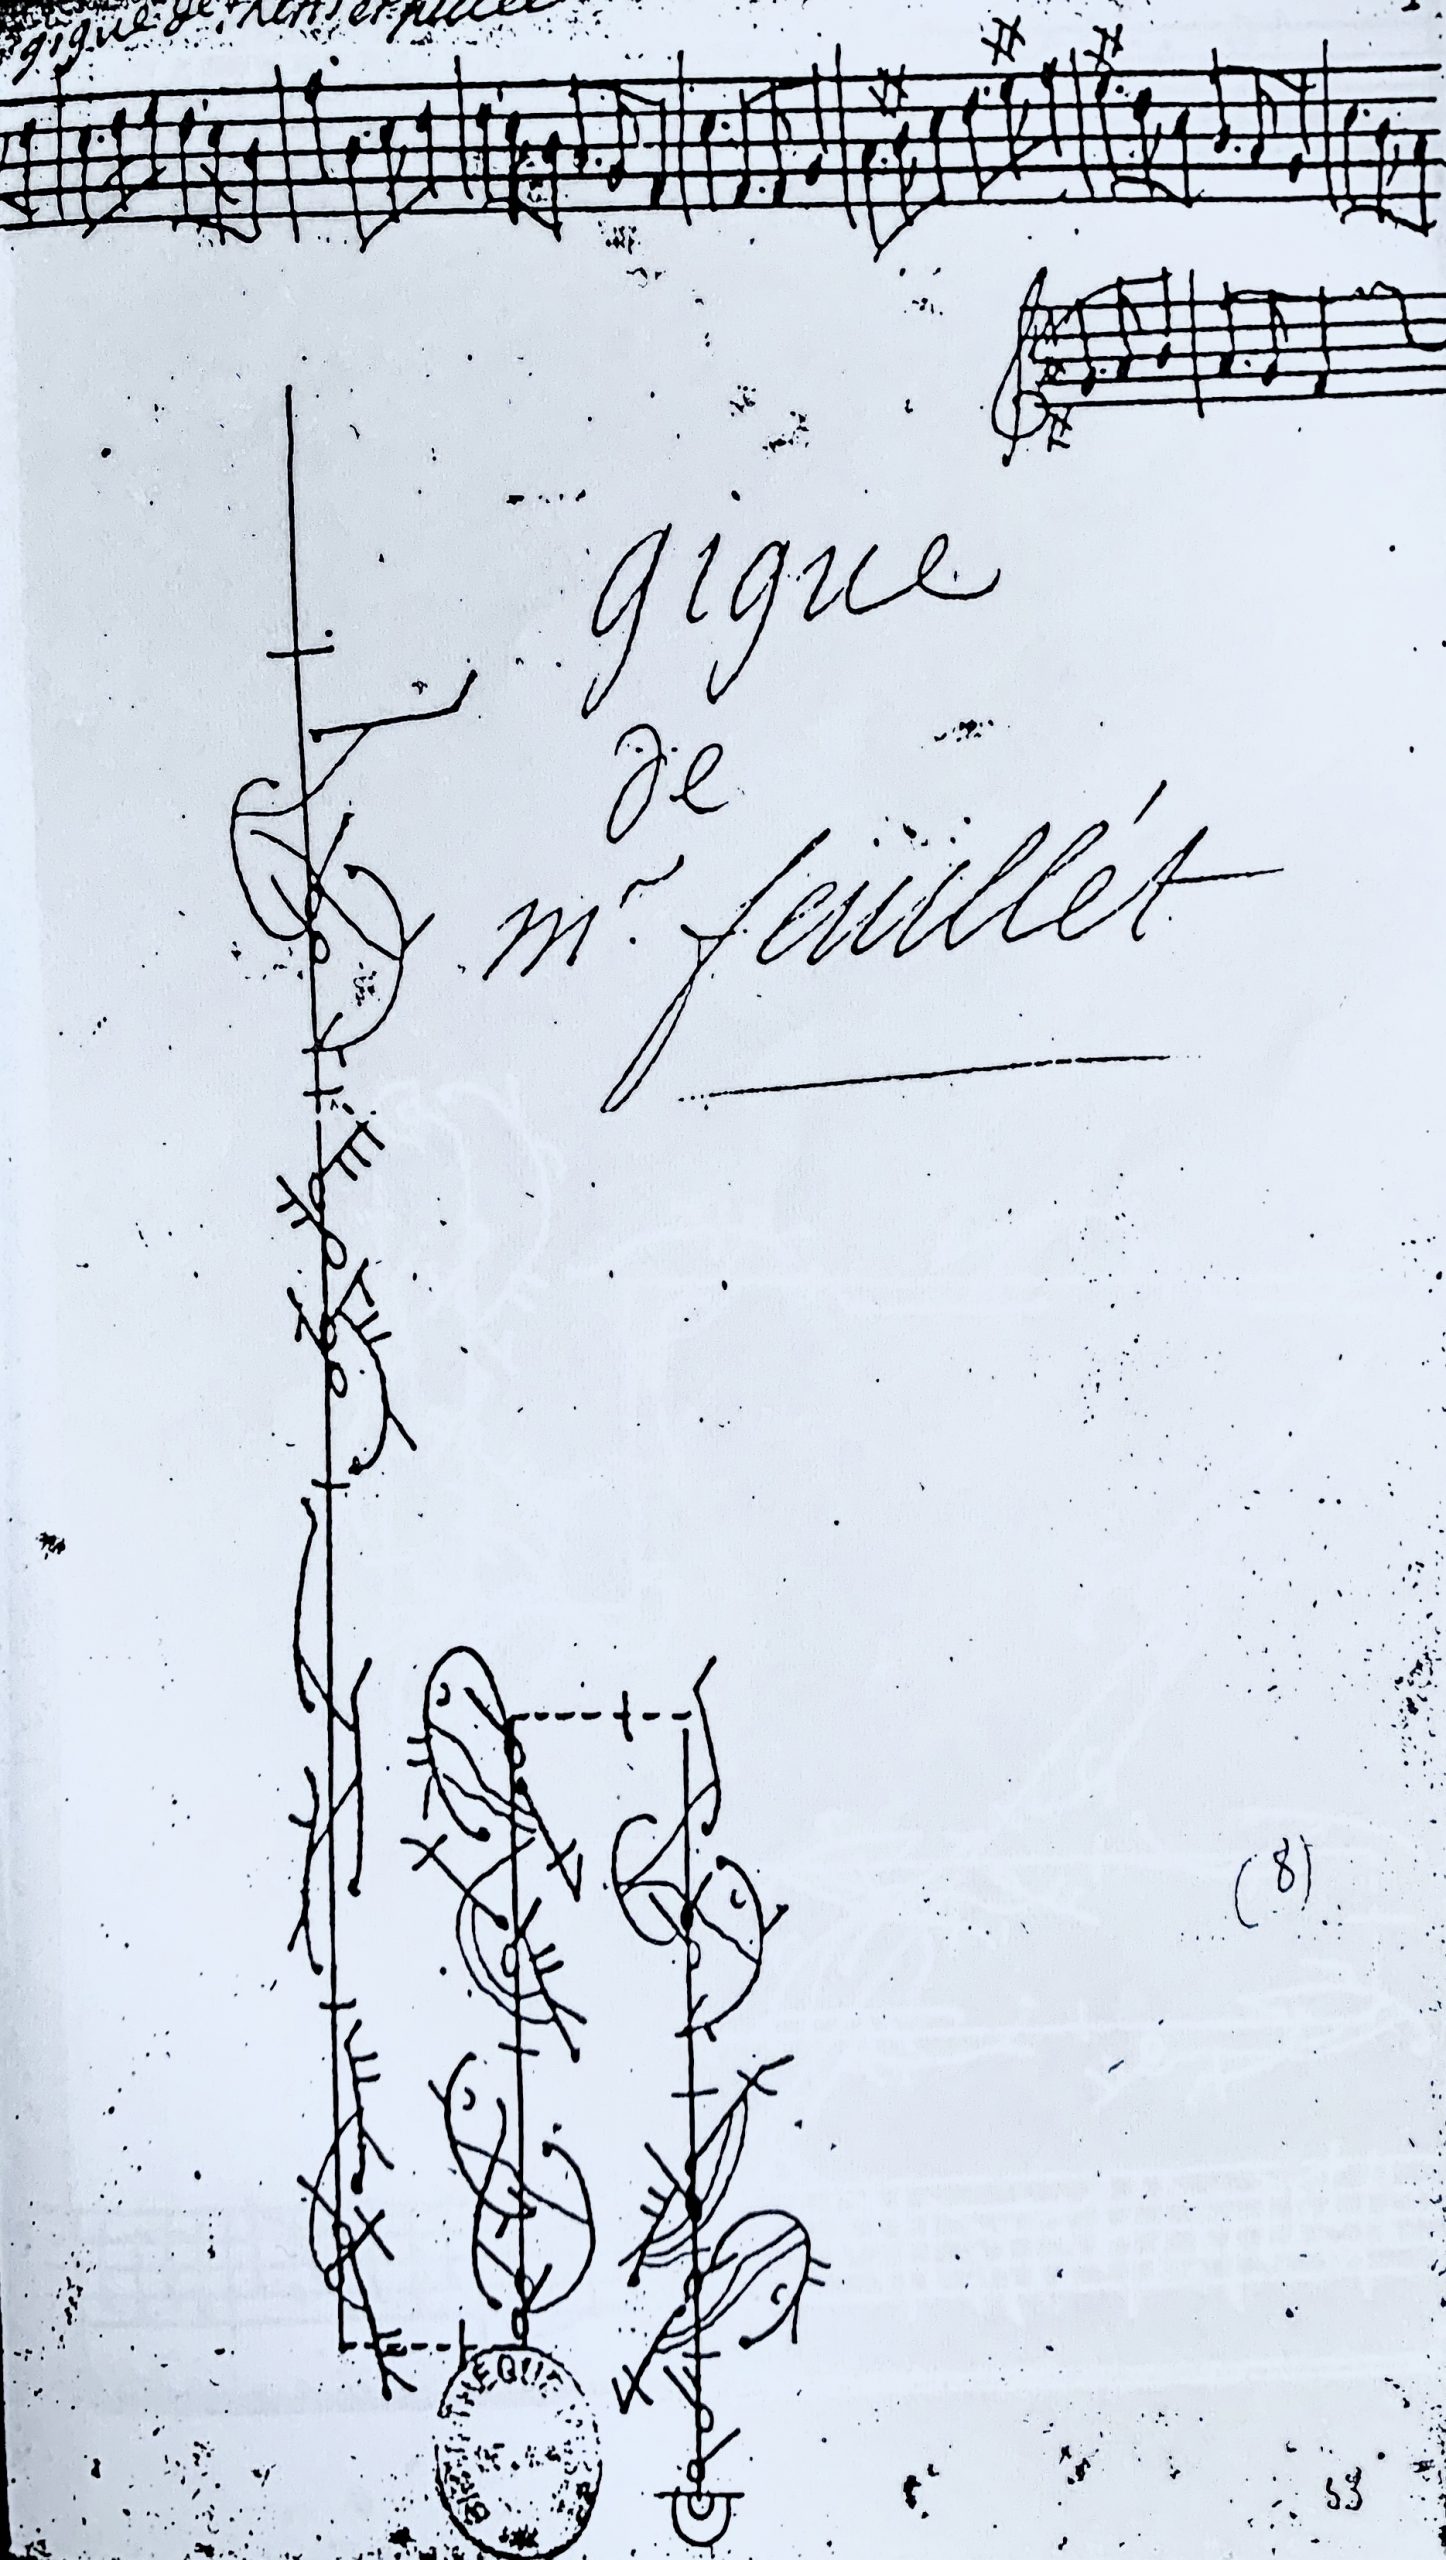 gigue de
gigue
de
mr. feüillét
(8)
53